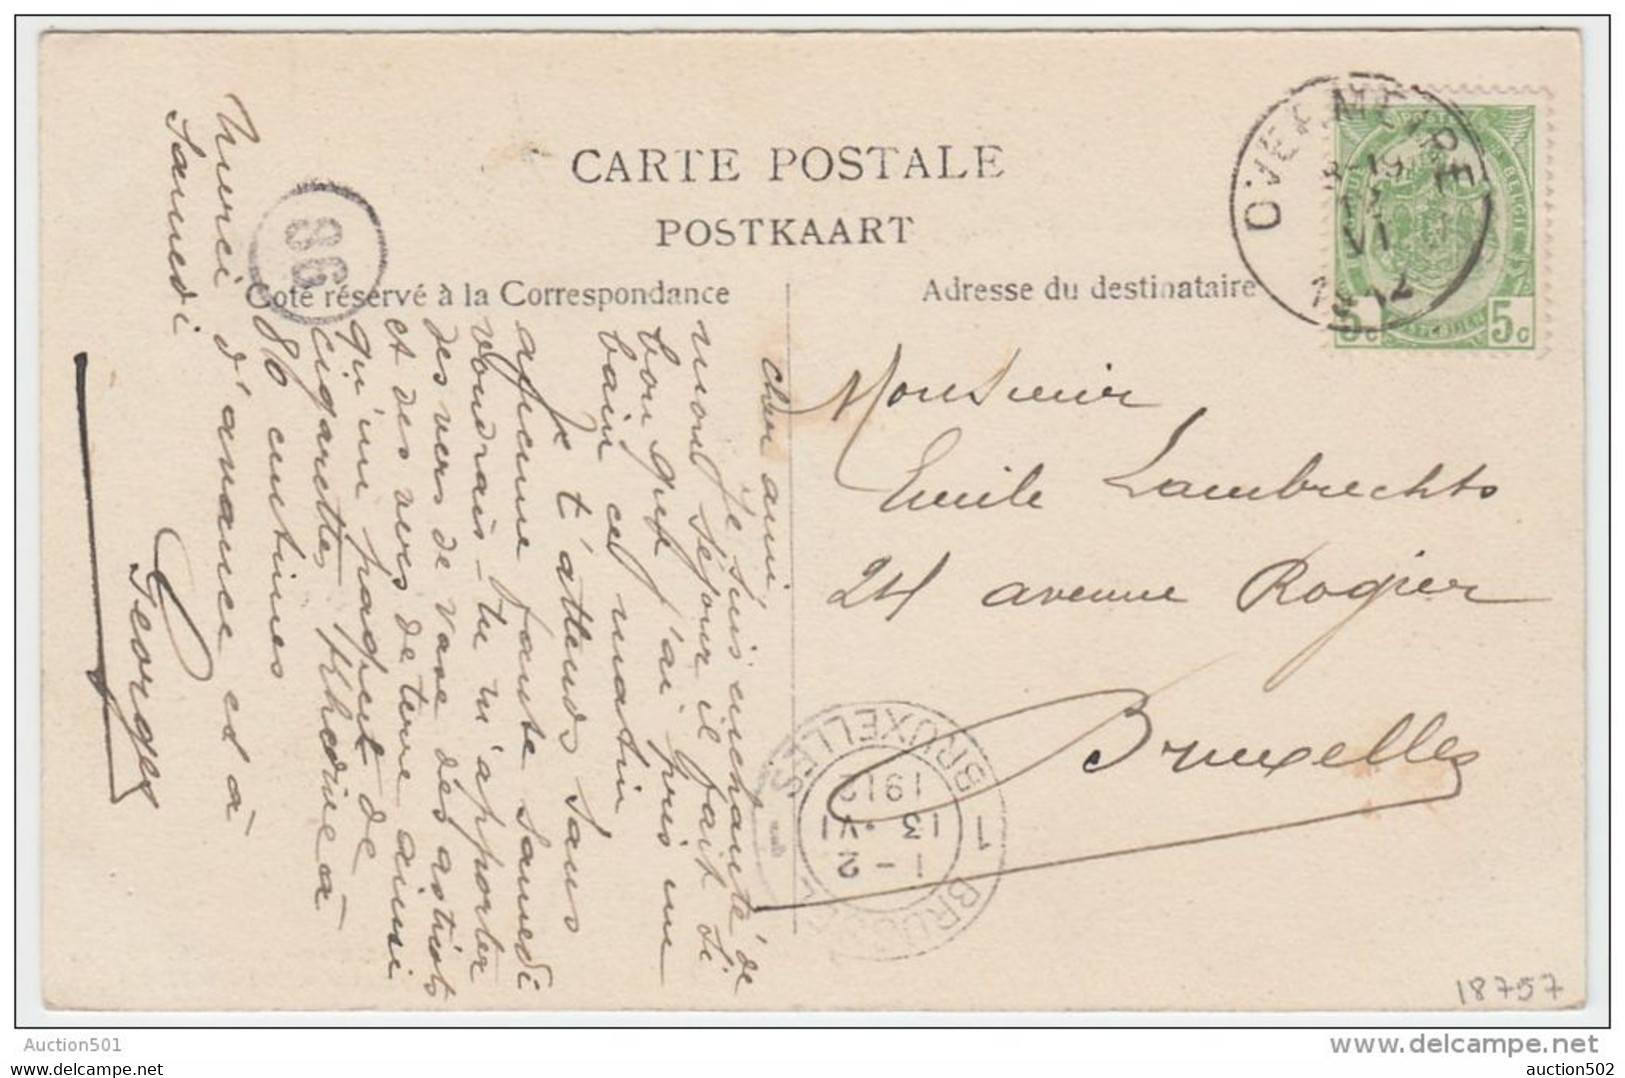 CARTE POSTALE
POSTKAART
Coté réservé à la Correspondance
Adresse du destinataire
OVERMEIRE
12
VI
1912
BELGIE
5c 5c
86
Monsieur
Emile Lambrechts
24 avenue Rogier
Bruxelles
cher ami
Je suis enchanté de
mon séjour il fait si
bon que j'ai pris un
bain cet matin
Je t'attends sans
aucune faute samedi
voudrais-tu m'apporter
des vers de vase des asticots
et des vers de terre ainsi
qu'un paquet de
cigarettes khédive à
80 centimes
Merci d'avance et à
Samedi
Georges
1 BRUXELLES
1-2
13 VI
1912
BRUSSEL
18757
Auction501
www.delcampe.net
auction502